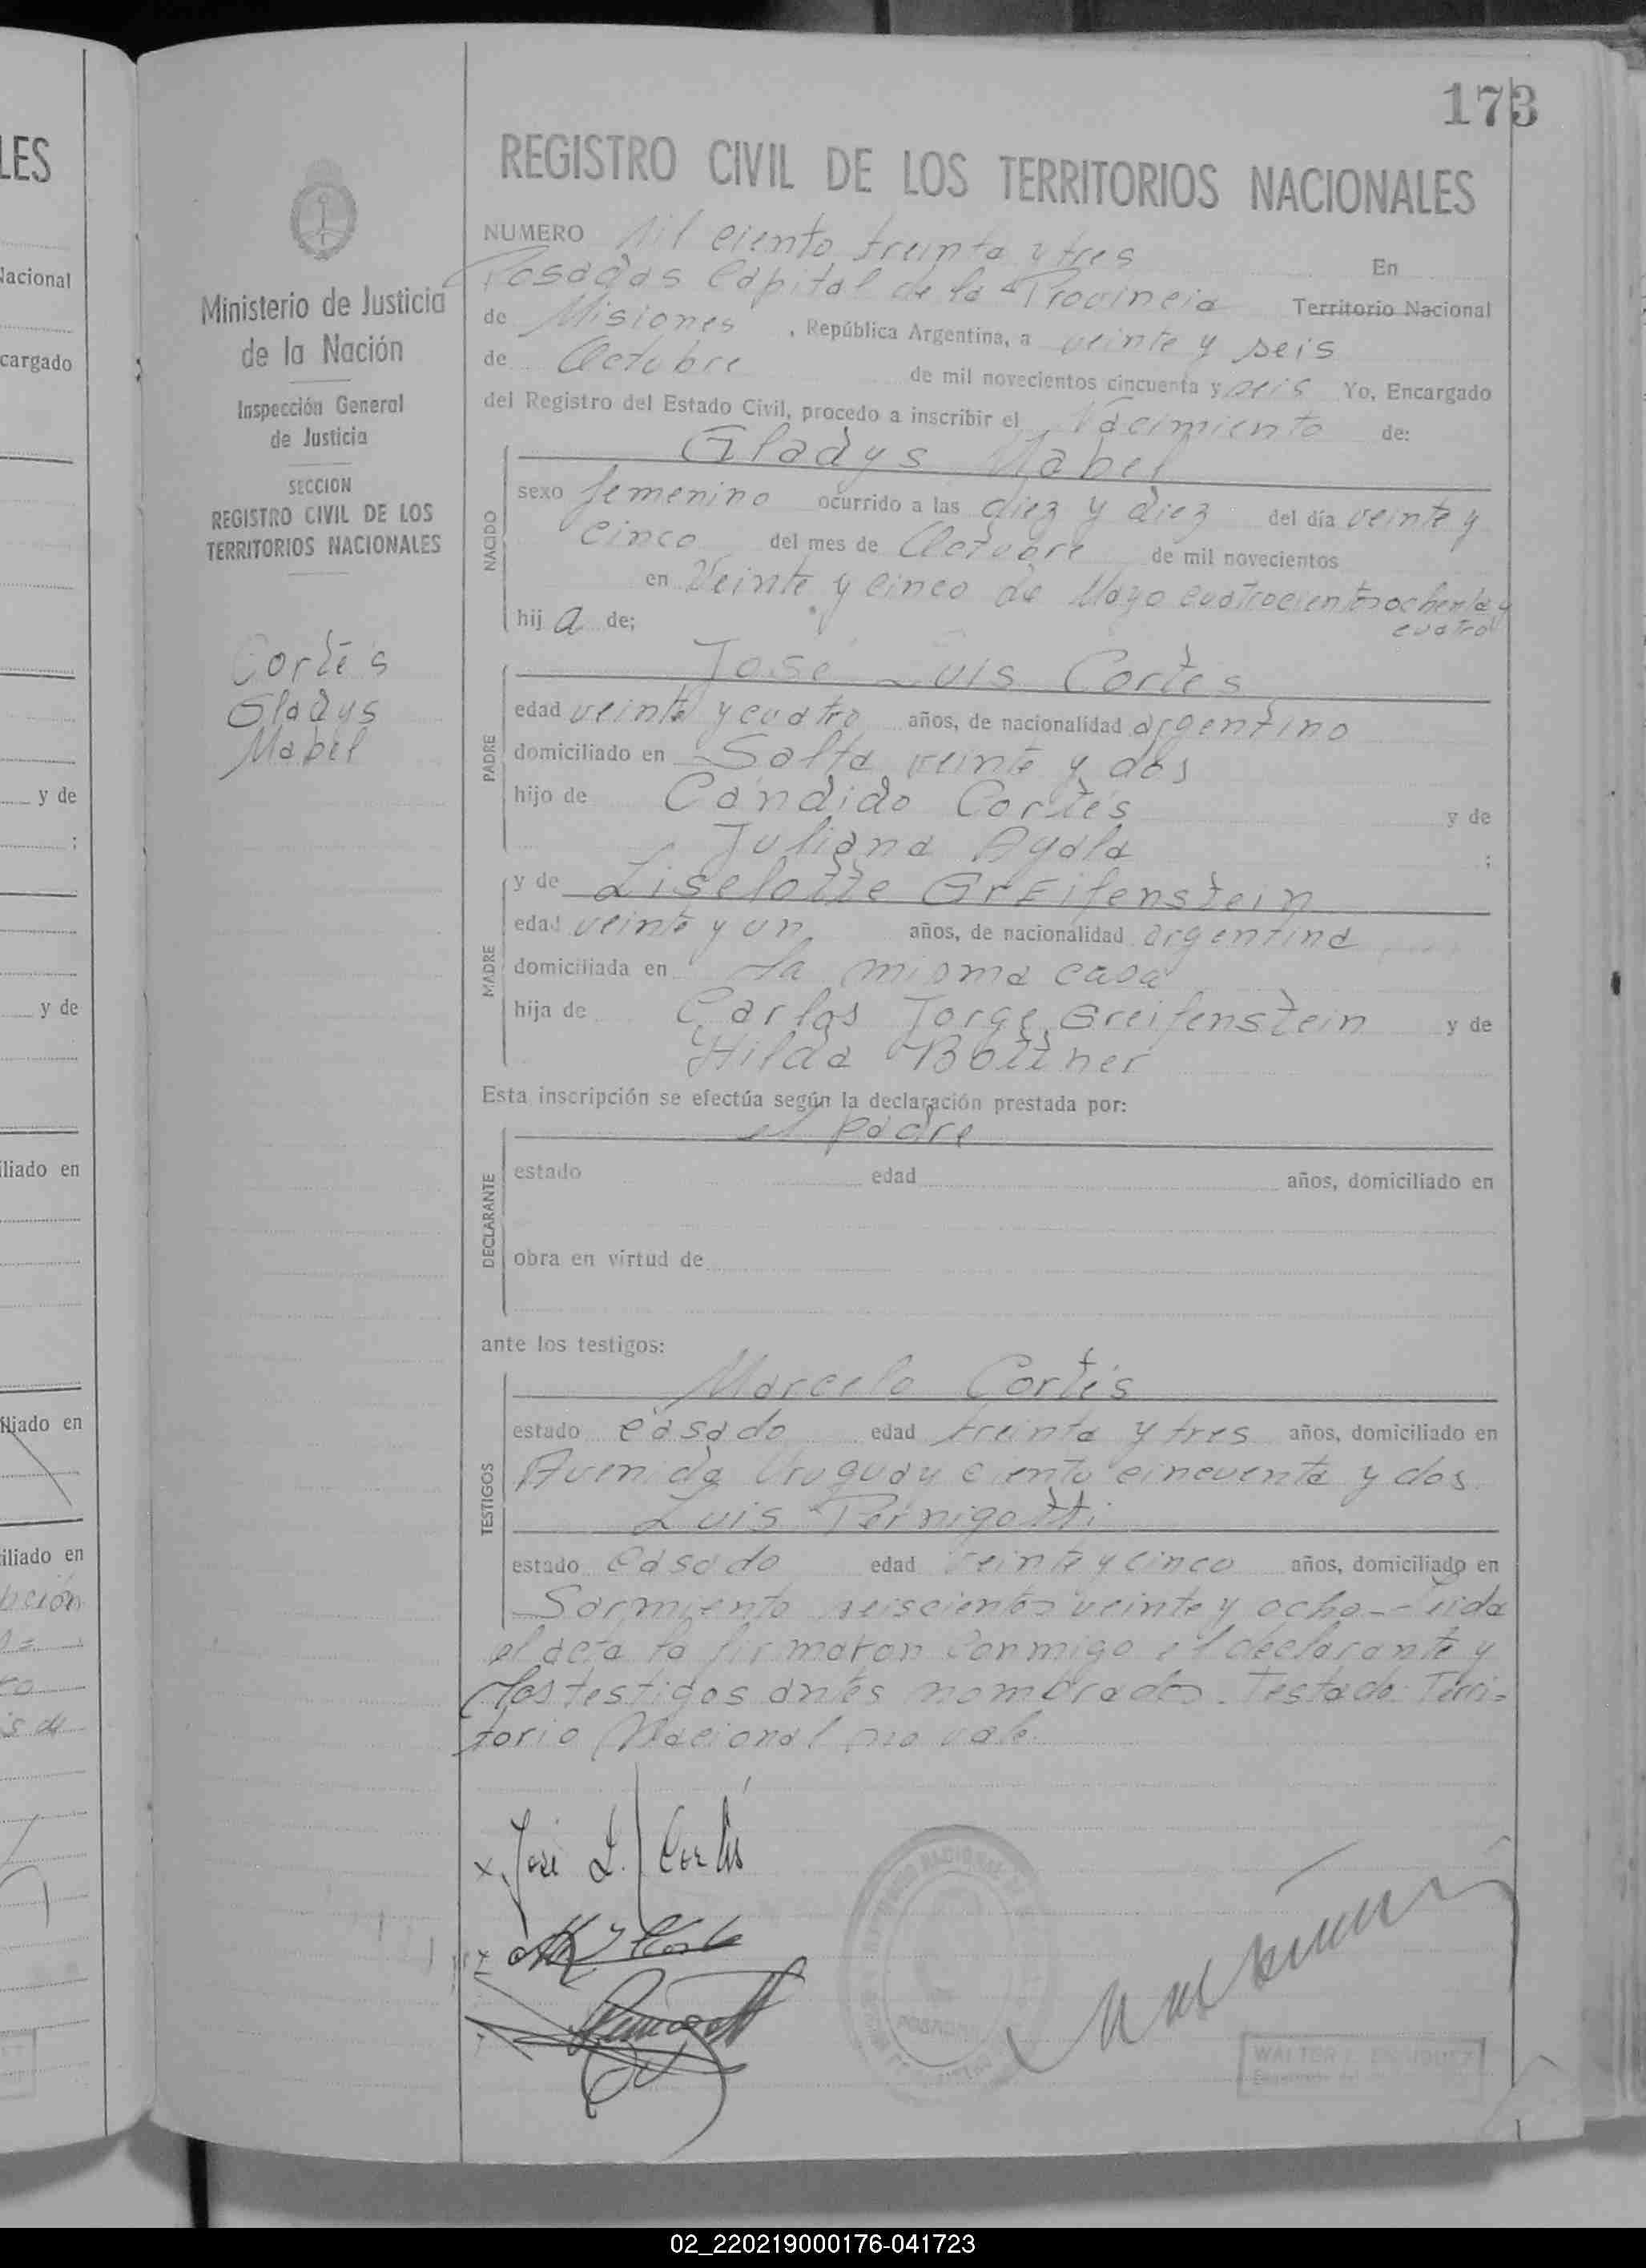 173
REGISTRO CIVIL DE LOS TERRITORIOS NACIONALES
NUMERO Mil ciento treinta y tres En
Posadas Capital de la Provincia Territorio Nacional
de Misiones, República Argentina, a veinte y seis
de Octubre de mil novecientos cincuenta y seis Yo, Encargado
del Registro del Estado Civil, procedo a inscribir el Nacimiento de:
NACIDO
Gladys Mabel
sexo femenino ocurrido a las diez y diez del día veinte y
cinco del mes de Octubre de mil novecientos
en Veinte y cinco de Mayo cuatrocientos ochenta y
cuatro
hija de;
PADRE
José Luis Cortés
edad veinte y cuatro años, de nacionalidad argentino
domiciliado en Salta veinte y dos
hijo de Cándido Cortés y de
Juliana Ayala ;
MADRE
y de Liselotte Greifenstein
edad veinte y un años, de nacionalidad argentina
domiciliada en la misma casa
hija de Carlos Jorge Greifenstein y de
Hilda Bottner
Esta inscripción se efectúa según la declaración prestada por:
DECLARANTE
el padre
estado edad años, domiciliado en
obra en virtud de
ante los testigos:
TESTIGOS
Marcelo Cortés
estado casado edad treinta y tres años, domiciliado en
Avenida Uruguay ciento cincuenta y dos
Luis Pernigotti
estado casado edad veinte y cinco años, domiciliado en
Sarmiento seiscientos veinte y ocho - Leida
el acta la firmaron conmigo el declarante y
los testigos antes nombrados. Testado: Terri-
torio Nacional no vale.
José L. Cortés
POSADAS
WALTER
Ministerio de Justicia
de la Nación
Inspección General
de Justicia
SECCION
REGISTRO CIVIL DE LOS
TERRITORIOS NACIONALES
Cortés
Gladys
Mabel
LES
Nacional
cargado
y de
;
y de
iliado en
iliado en
iliado en
02_220219000176-041723